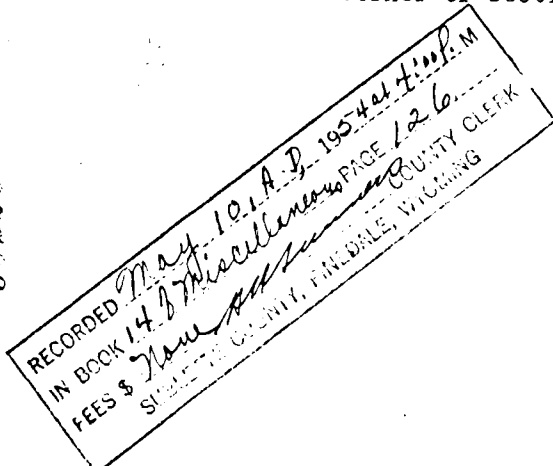 RECORDED May 10, A.D, 1954 at 4:00 P. M
IN BOOK 14 of Miscellaneous PAGE 126
FEES $ None COUNTY CLERK
SUBLETTE COUNTY, PINEDALE, WYOMING